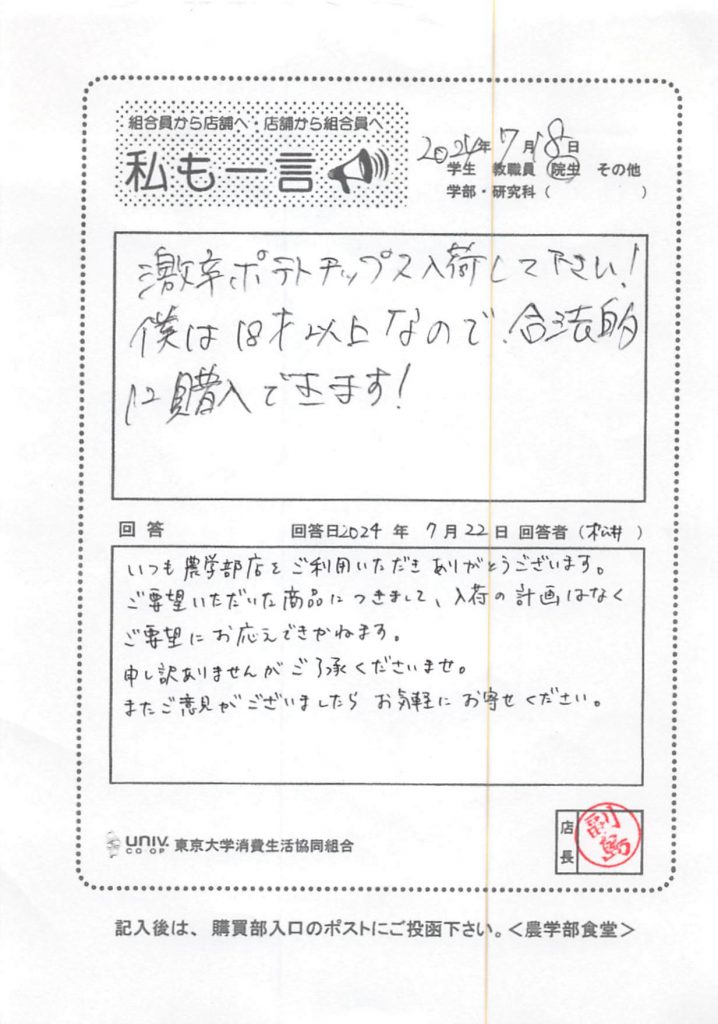 組合員から店舗へ・店舗から組合員へ
私も一言
2024年7月18日
学生 教職員 院生 その他
学部・研究科（ ）
激辛ポテトチップス入荷して下さい！
僕は18才以上なので、合法的
に購入できます！
回答 回答日2024年7月22日 回答者（松井）
いつも農学部店をご利用いただきありがとうございます。
ご要望いただいた商品につきまして、入荷の計画はなく
ご要望にお応えできかねます。
申し訳ありませんがご了承くださいませ。
またご意見がございましたらお気軽にお寄せください。
店長
UNIV. CO-OP 東京大学消費生活協同組合
記入後は、購買部入口のポストにご投函下さい。＜農学部食堂＞